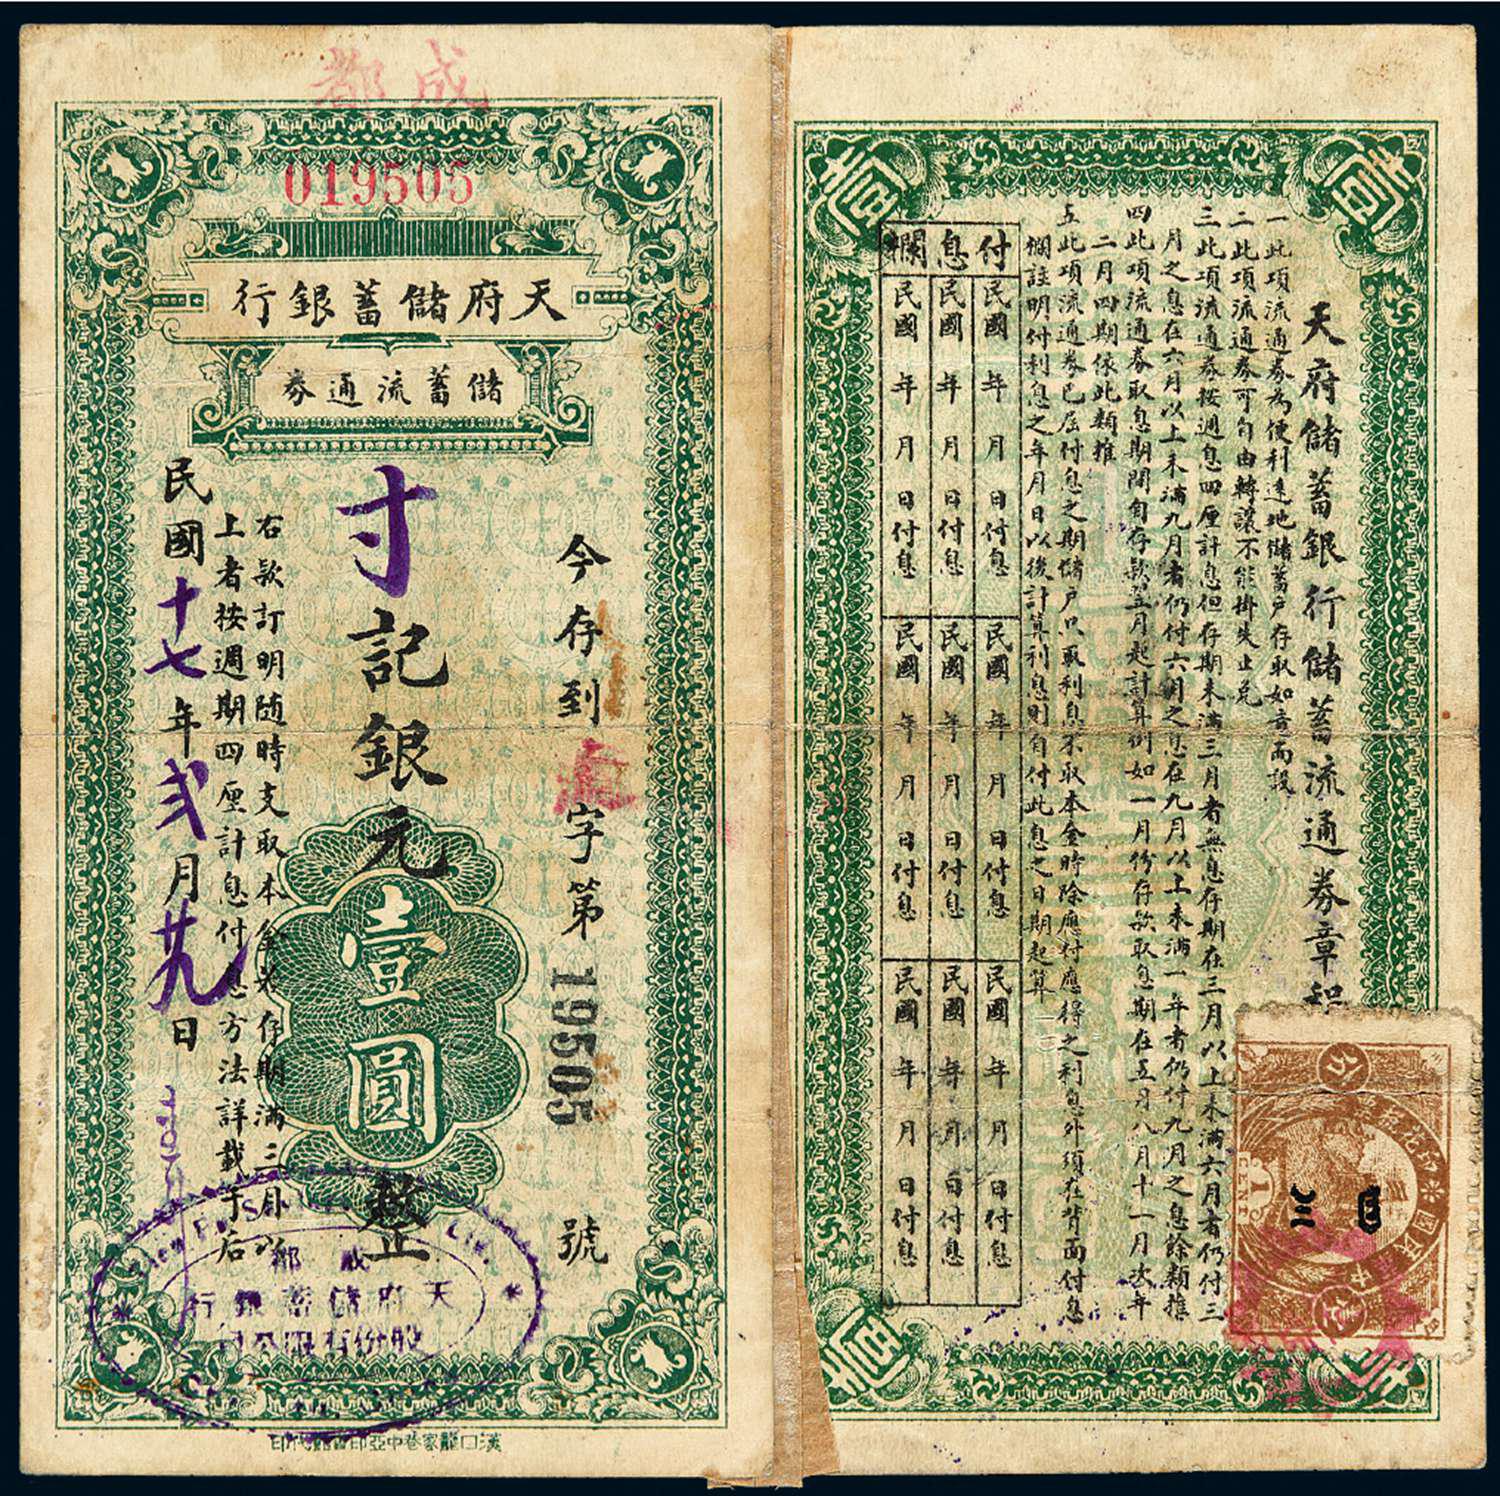 成都
019505
天府儲蓄銀行
儲蓄流通券
今存到 字第19505號
寸記銀元壹圓整
右款訂明随時支取本金若存期滿三月以
上者按週期四厘計息付息方法詳載于后
民國十七年弍月廿九日
成都
天府儲蓄銀行
股份有限公司
漢口龍家巷中亞印書館代印
壹
壹
天府儲蓄銀行儲蓄流通券章程
一此項流通券為便利遠地儲蓄户存取如意而設
二此項流通券可自由轉讓不能掛失止兑
三此項流通券按週息四厘計息但存期未滿三月者無息存期在三月以上未滿六月者仍付三
月之息在六月以上未滿九月者仍付六月之息在九月以上未滿一年者仍付九月之息餘類推
四此項流通券取息期間自存款五月起計算例如一月份存款取息期在五月八月十一月次年
二月四期依此類推
五此項流通券已屆付息之期儲户只取利息不取本金時除應付應得之利息外須在背面付息
欄註明付利息之年月日以後計算利息則自付此息之日期起算
付息欄
民國 年 月 日付息
民國 年 月 日付息
民國 年 月 日付息
民國 年 月 日付息
民國 年 月 日付息
民國 年 月 日付息
民國 年 月 日付息
民國 年 月 日付息
民國 年 月 日付息
壹
壹
分
印花税票
國民
1
CENT